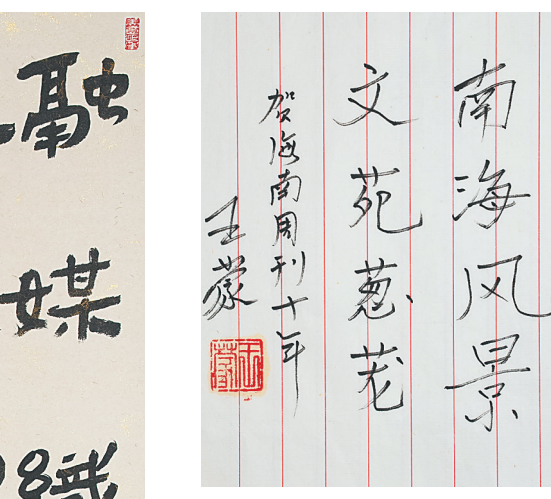 融媒
南海风景
文苑葱茏
贺海南周刊十年
王蒙
王蒙